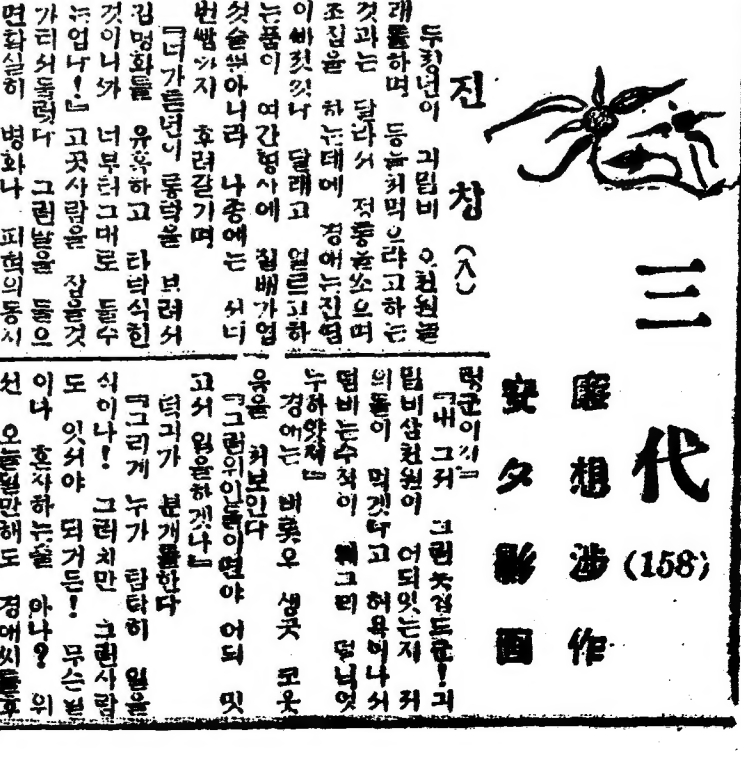 三代
(158)
廉想涉作
安夕影画
진창 (八)
두청년이 긔밀비 오쳔원을
래를하며 등을처먹으랴고하는
것과는 달라서 정통을쏘으며
조짐을 하는데에 경애는진땀
달래고 얼르고하
는품이 여간형사에 질배가업
섯슬뿐아니라 나종에는 서너
번쌤까지 후려갈기며
『너가튼년이 보려서
김병화를 유혹하고 타락식힌
것이니까 너부터그대로 둘수
는업다!』고곳사람을 잡을것
가티서둘럿다 그런말을 들으
면확실히 병화나 피혁의동시
럿군이지』
『내 그저 긔
밀비삼쳔원이 어듸잇는지 저
의들이 먹겟다고 허욕이나서
덤비는수작이 웨그리
경애는 비롯오 생긋 코웃
음을 처보인다
『그런위인들이면야 어듸 밋
고서 일을하겟나』
덕긔가 분개를한다
『그러게 누가 탐탁히 일을
식이나! 그러치만 그런사람
도 잇서야 되거든! 무슨일
이나 혼자하는줄 아나? 위
선 오늘일만해도 경애씨를후